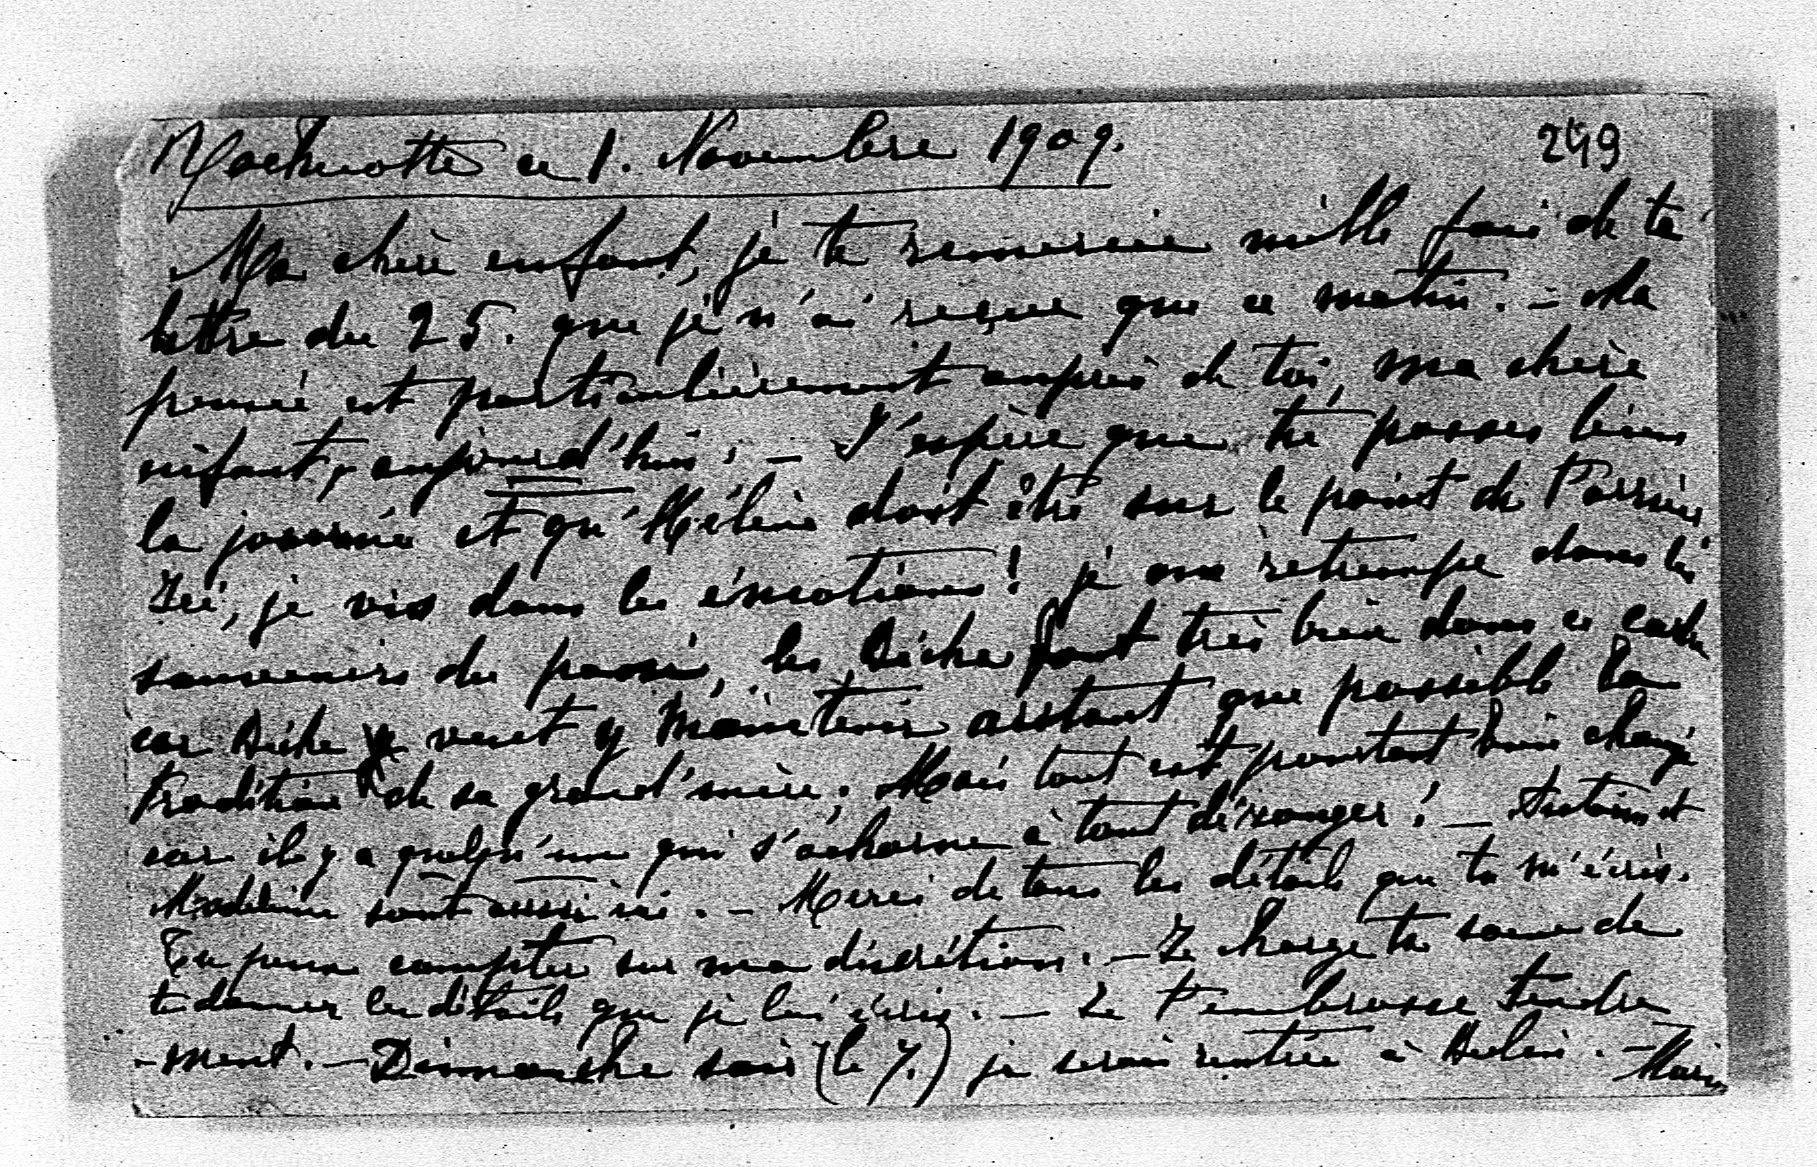 ce 1. Novembre 1909.
249
Ma chère enfant, je te remercie mille fois de ta
lettre du 25. que je n'ai reçue que ce matin. - Ma
pensée est particulièrement auprès de toi, ma chère
enfant, aujourd'hui. - J'espère que tu passes bien
la journée et qu'Hélène doit être sur le point de t'arriver
Ici, je vis dans les émotions! je me retrempe dans les
souvenirs du passé, les font très bien dans ce cadre
car veut y maintenir autant que possible la
tradition de sa grand'mère; Mais tout est pourtant bien changé
car il y a quelqu'un qui s'acharne à tout déranger! - Antoine et
Madeleine sont aussi ici. - Merci de tous les détails que tu m'écris.
Tu peux compter sur ma discrétion. - Je charge ta soeur de
te donner les détails que je lui écris. - Je t'embrasse tendre
-ment. - Dimanche soir (le 7.) je serai rentrée à Berlin. - Marie